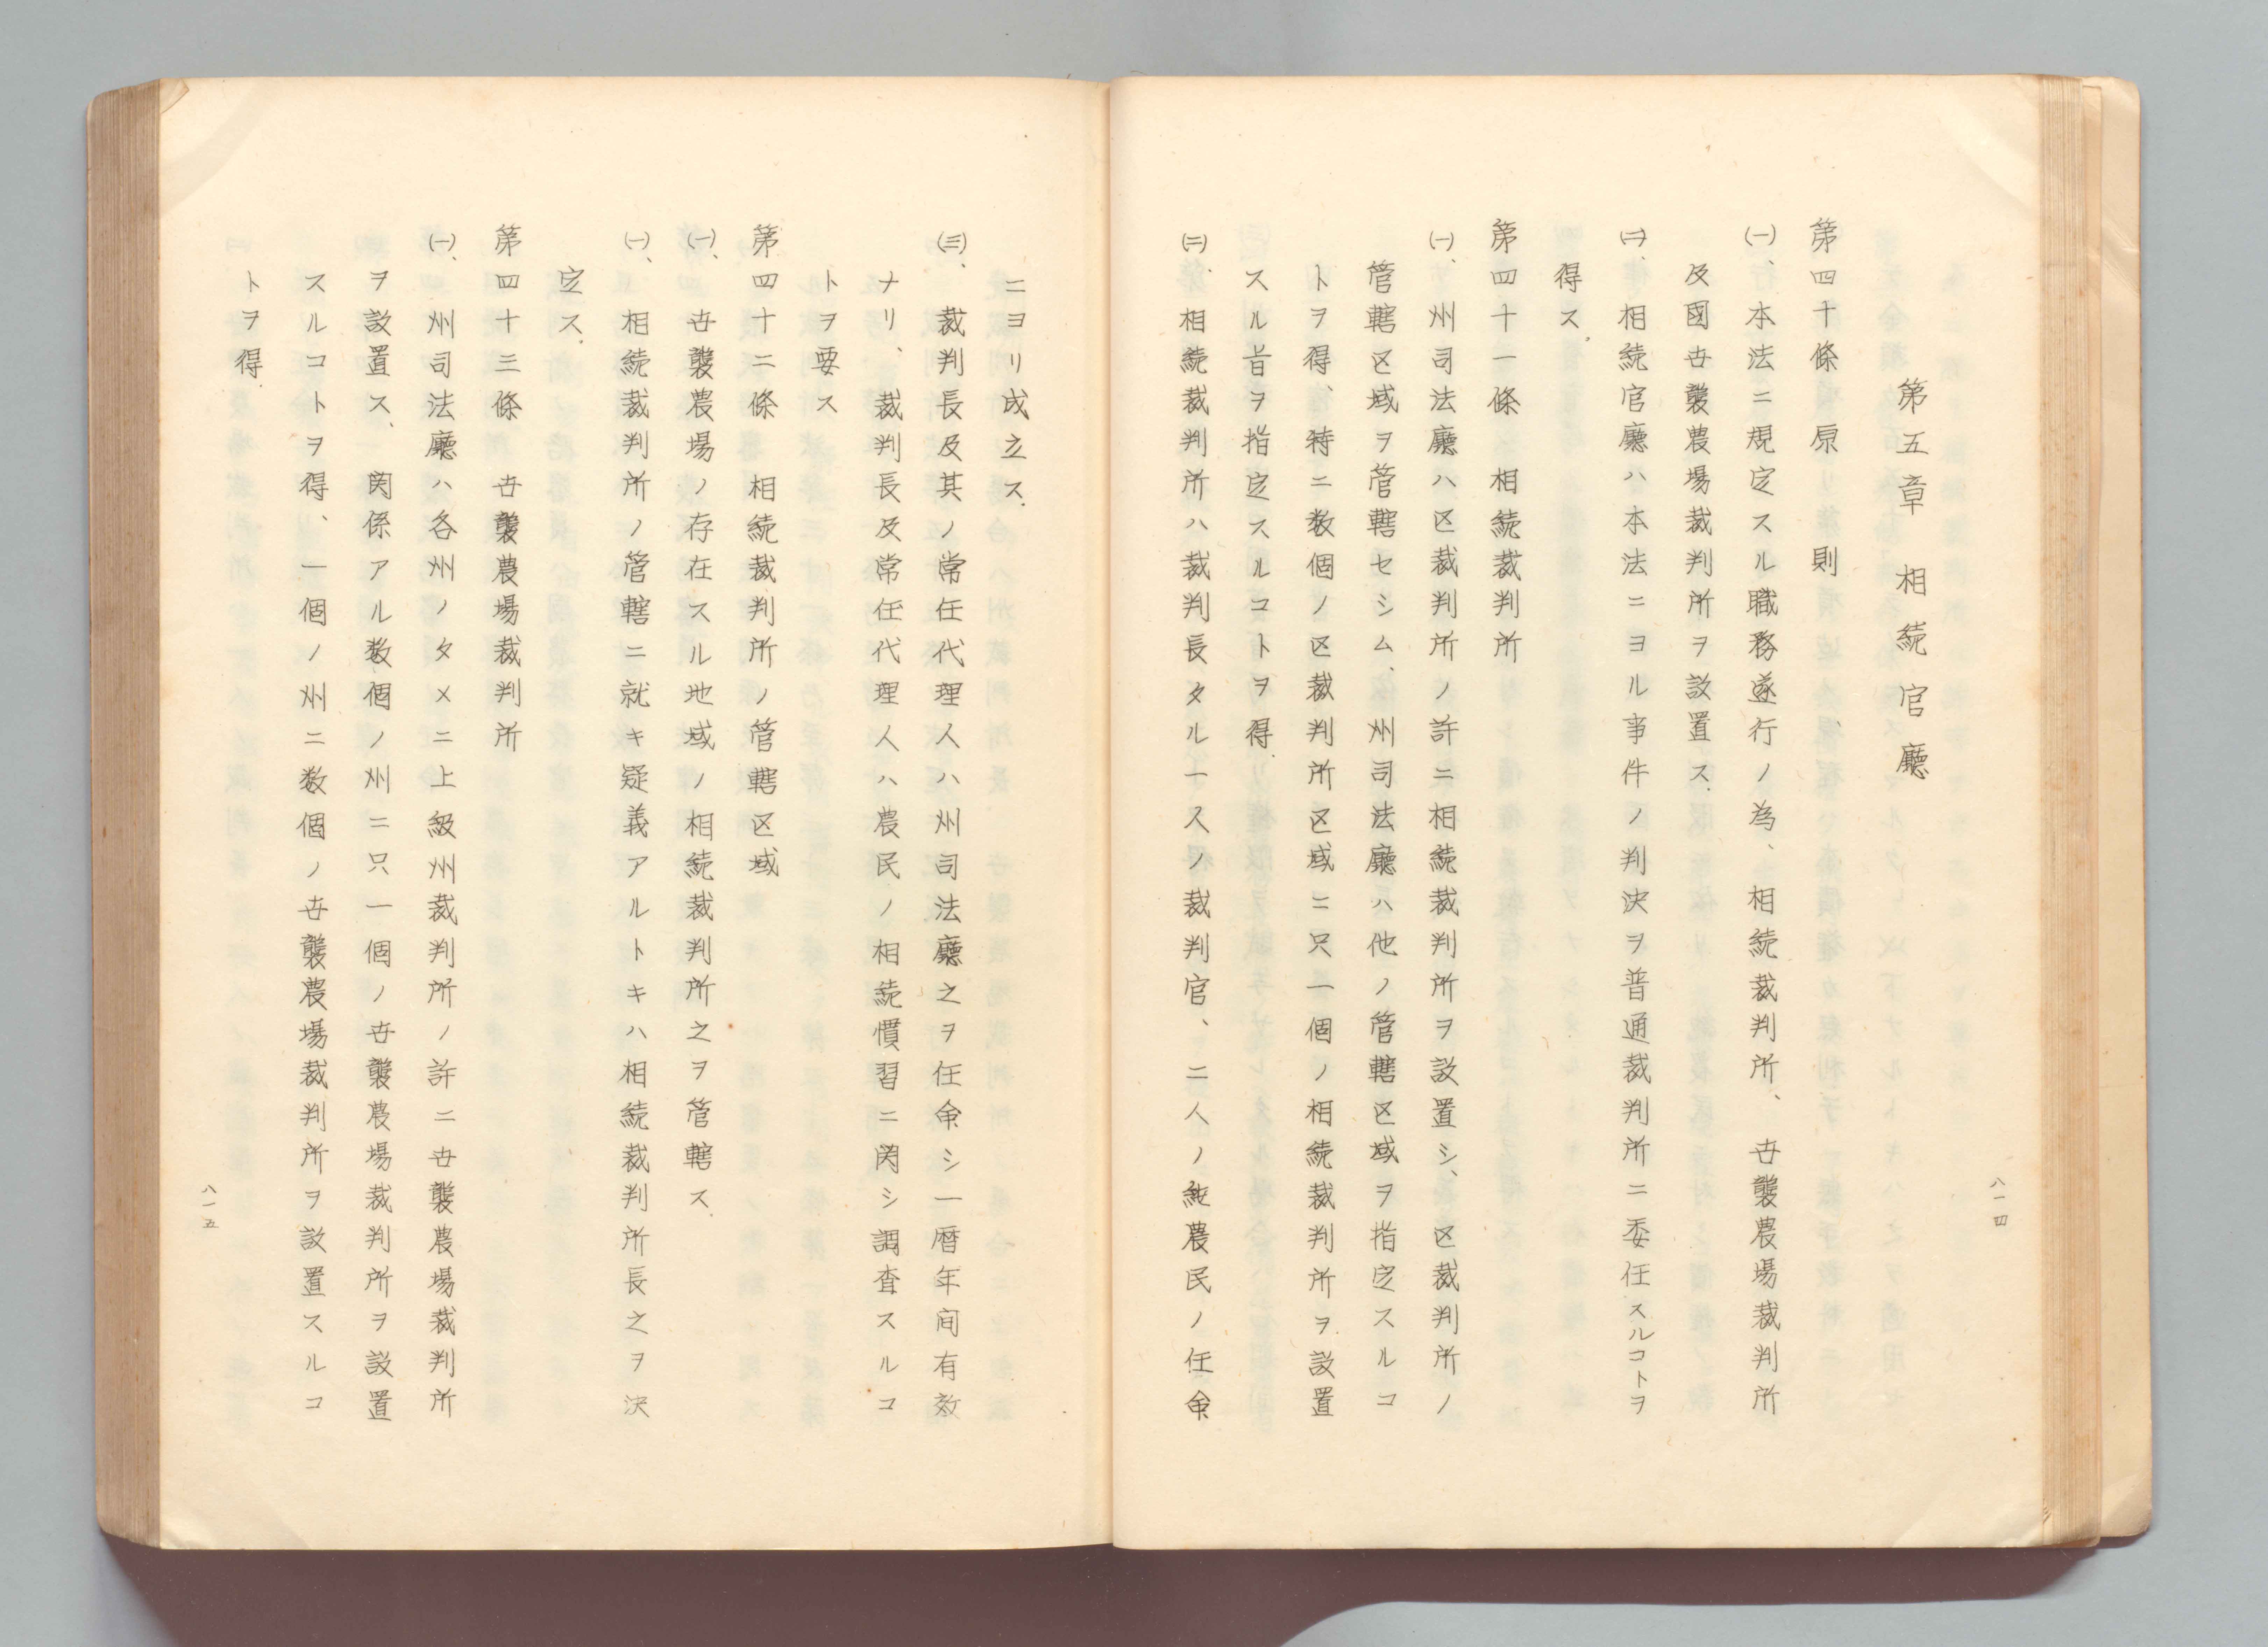 第五章　相続官廳
第四十條　原　則
(一)、本法ニ規定スル職務遂行ノ為、相続裁判所、世襲農場裁判所
及國世襲農場裁判所ヲ設置ス.
(二)、相続官廳ハ本法ニヨル事件ノ判決ヲ普通裁判所ニ委任スルコトヲ
得ス.
第四十一條　相続裁判所
(一)、州司法廳ハ区裁判所ノ許ニ相続裁判所ヲ設置シ、区裁判所ノ
管轄区域ヲ管轄セシム、州司法廳ハ他ノ管轄区域ヲ指定スルコ
トヲ得、特ニ数個ノ区裁判所区域ニ只一個ノ相続裁判所ヲ設置
スル旨ヲ指定スルコトヲ得.
(二)、相続裁判所ハ裁判長タル一人ノ裁判官、二人ノ純農民ノ任命
八一四
ニヨリ成立ス.
(三)、裁判長及其ノ常任代理人ハ州司法廳之ヲ任命シ一暦年间有效
ナリ、裁判長及常任代理人ハ農民ノ相続慣習ニ関シ調査スルコ
トヲ要ス
第四十二條　相続裁判所ノ管轄区域
(一)、世襲農場ノ存在スル地域ノ相続裁判所之ヲ管轄ス.
(一)、相続裁判所ノ管轄ニ就キ疑義アルトキハ相続裁判所長之ヲ決
定ス.
第四十三條　世襲農場裁判所
(一)、州司法廳ハ各州ノタメニ上級州裁判所ノ許ニ世襲農場裁判所
ヲ設置ス、関係アル数個ノ州ニ只一個ノ世襲農場裁判所ヲ設置
スルコトヲ得、一個ノ州ニ数個ノ世襲農場裁判所ヲ設置スルコ
トヲ得.
八一五